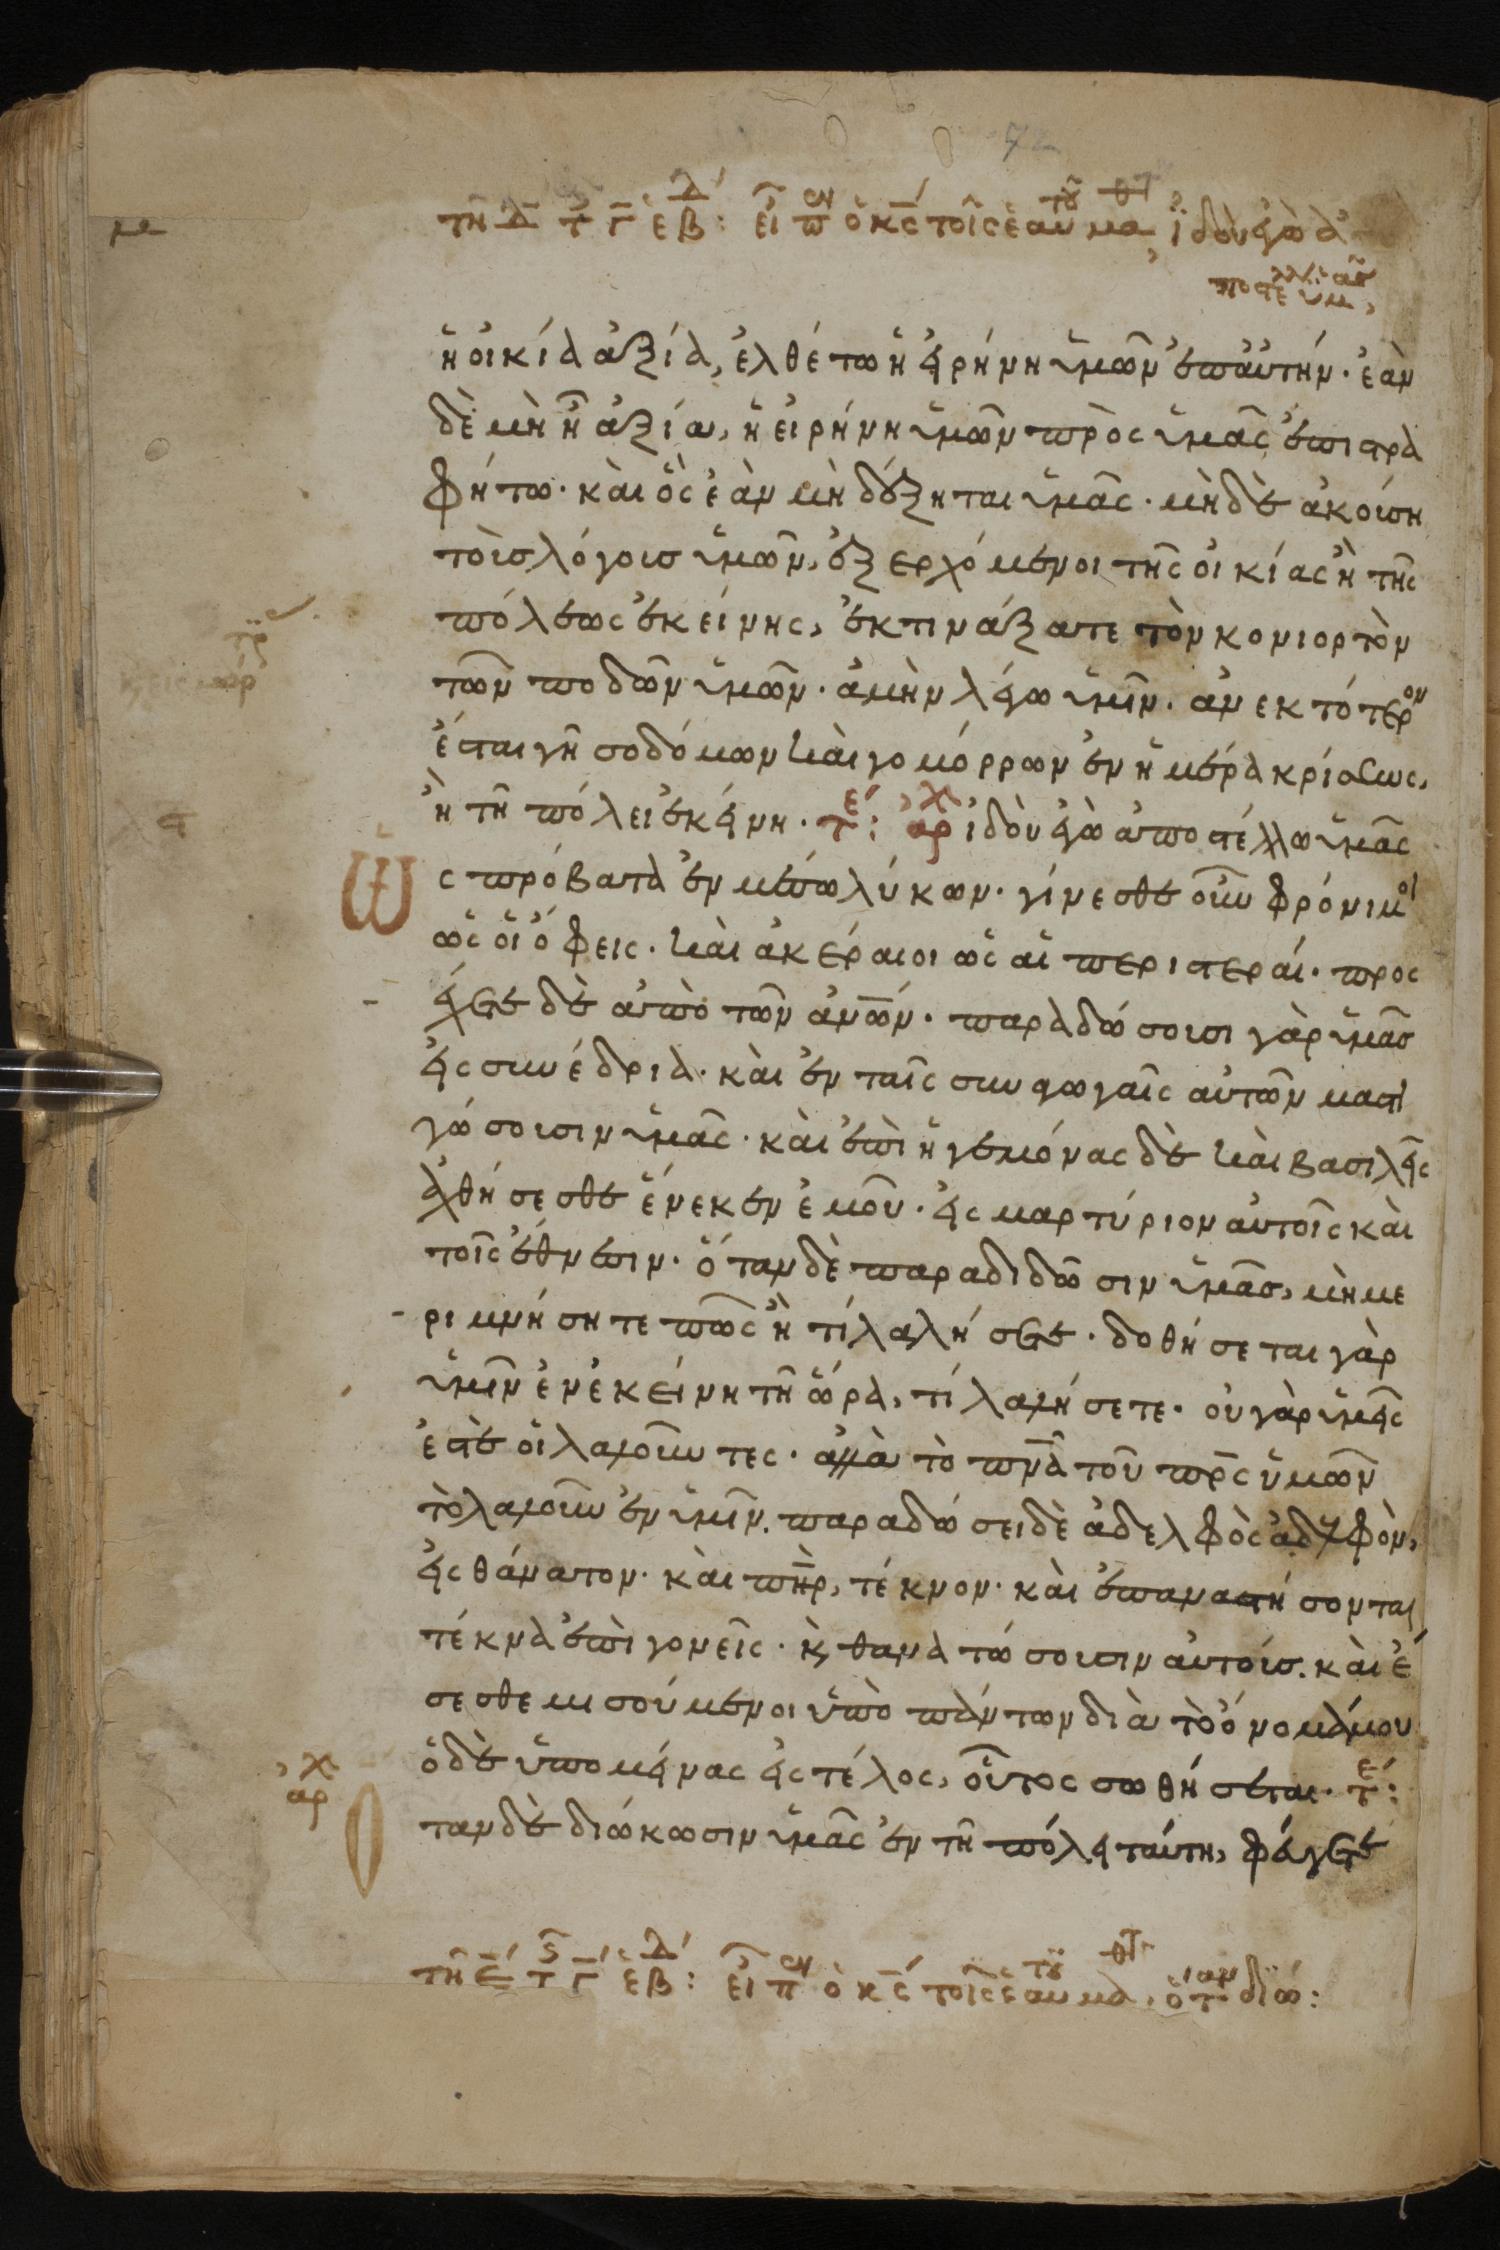 τῆ Δ τ Γ ἑβδ: εἶπεν ὁ κς τοῖς ἑαυτοῦ μαθτ, ἰδοὺ ἐγὼ ἀ
ποστέλλω ὑμᾶς
ἡ οἰκία ἀξία, ἐλθέτω ἡ εἰρήνη ὑμῶν ἐπ αὐτήν· ἐὰν
δὲ μὴ ἦ ἀξία, ἡ εἰρήνη ὑμῶν πρὸς ὑμᾶς ἐπιστρα
φήτω· καὶ ὃς ἐὰν μὴ δέξηται ὑμᾶς· μηδὲ ἀκούση
τοὺς λόγους ὑμῶν, ἐξερχόμενοι τῆς οἰκίας ἢ τῆς
πόλεως ἐκείνης, ἐκτινάξατε τὸν κονιορτὸν
τῶν ποδῶν ὑμῶν· ἀμὴν λέγω ὑμῖν· ἀνεκτότερον
ἔσται γῆ σοδόμων καὶ γομόρρων ἐν ἡμέρα κρίσεως,
ἢ τῆ πόλει ἐκείνη· τε: αρχ ἰδοὺ ἐγὼ ἀποστέλλω ὑμᾶς
Ὡς πρόβατα ἐν μέσω λύκων· γίνεσθε οὖν φρόνιμοι
ὡς οἱ ὄφεις· καὶ ἀκέραιοι ὡς αἱ περιστεραί· προσ
έχετε δὲ ἀπὸ τῶν ἀνῶν· παραδώσουσι γὰρ ὑμᾶς
εἰς συνέδρια· καὶ ἐν ταῖς συναγωγαῖς αὐτῶν μαστι
γώσουσιν ὑμᾶς· καὶ ἐπὶ ἡγεμόνας δὲ καὶ βασιλεῖς
ἀχθήσεσθε ἕνεκεν ἐμοῦ· εἰς μαρτύριον αὐτοῖς καὶ
τοῖς ἔθνεσιν· ὅταν δὲ παραδιδῶσιν ὑμᾶς, μὴ με
ριμνήσητε πῶς ἢ τί λαλήσετε· δοθήσεται γὰρ
ὑμῖν ἐν ἐκείνη τῆ ὥρα, τί λαλήσετε· οὐ γὰρ ὑμεῖς
ἐστὲ οἱ λαλοῦντες· ἀλλὰ τὸ πνα τοῦ πρς ὑμῶν
τὸ λαλοῦν ἐν ὑμῖν. παραδώσει δὲ ἀδελφὸς ἀδελφὸν,
εἰς θάνατον· καὶ πηρ, τέκνον· καὶ ἐπαναστήσονται
τέκνα ἐπὶ γονεῖς· κ θανατώσουσιν αὐτούς. καὶ ἔ
σεσθε μισούμενοι ὑπὸ πάντων διὰ τὸ ὄνομά μου
ὁ δὲ ὑπομείνας εἰς τέλος, οὗτος σωθήσεται· τε:
αρχ
Ὅταν δὲ διώκωσιν ὑμᾶς ἐν τῆ πόλει ταύτη, φεύγετε
τῆ ε τς Γ ἑβδ: εἶπεν ὁ κς τοῖς ἑαυτοῦ μαθτ, ὅταν διώ: